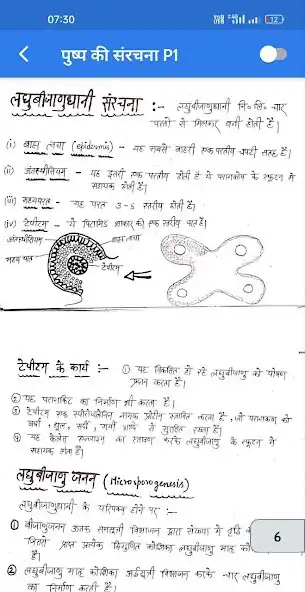 07:30
12
पुष्प की संरचना P1
लघुबीजाणुधानी संरचना :- लघुबीजाणुधानी नि० लि० चार
परतो से मिलकर बनी होती हैं।
(i) बाह्य त्वचा (epidermis) - यह सबसे बाहरी एक परतीय चपटी सतह हैं।
(ii) अंतस्थीसियम - यह दूसरी एक परतीय होती हैं ये परागकोष के स्फुटन में
सहायक होती हैं।
(iii) मध्यपरत - यह परत 3-5 स्तरीय होती हैं।
(iv) टेपीटम - ये पिरामिड आकार की एक स्तरीय परत हैं।
अंतस्थीसियम बाह्य त्वचा
मध्य परत
टेपीटम
टेपीटम के कार्य :- ① यह विकसित हो रहे लघुबीजाणु को पोषण
प्रदान करता हैं।
② यह परागकिट का निर्माण भी करता हैं।
③ टेपीटम एक स्पोरोपोलेनिन नामक प्रोटीन स्त्रावित करता हैं, जो परागकण को
वर्षा, धूल, सर्दी, गर्मी आदि से सुरक्षित रखता हैं।
④ यह कैलेज एन्जाइम का स्त्रावण करके लघुबीजाणु के स्फुटन में
सहायक होता हैं।
लघुबीजाणु जनन (Microsporogenesis)
लघुबीजाणुधानी के परिपक्व होने पर :-
① बीजाणुजनन ऊतक समसूत्री विभाजन द्वारा संख्या में वृद्धि
जिससे प्राप्त प्रत्येक द्विगुणित कोशिका लघुबीजाणु मातृ को
हैं।
6
② लघुबीजाणु मातृ कोशिका अर्द्धसूत्री विभाजन करके चार लघुबीजाणु
का निर्माण करती हैं।